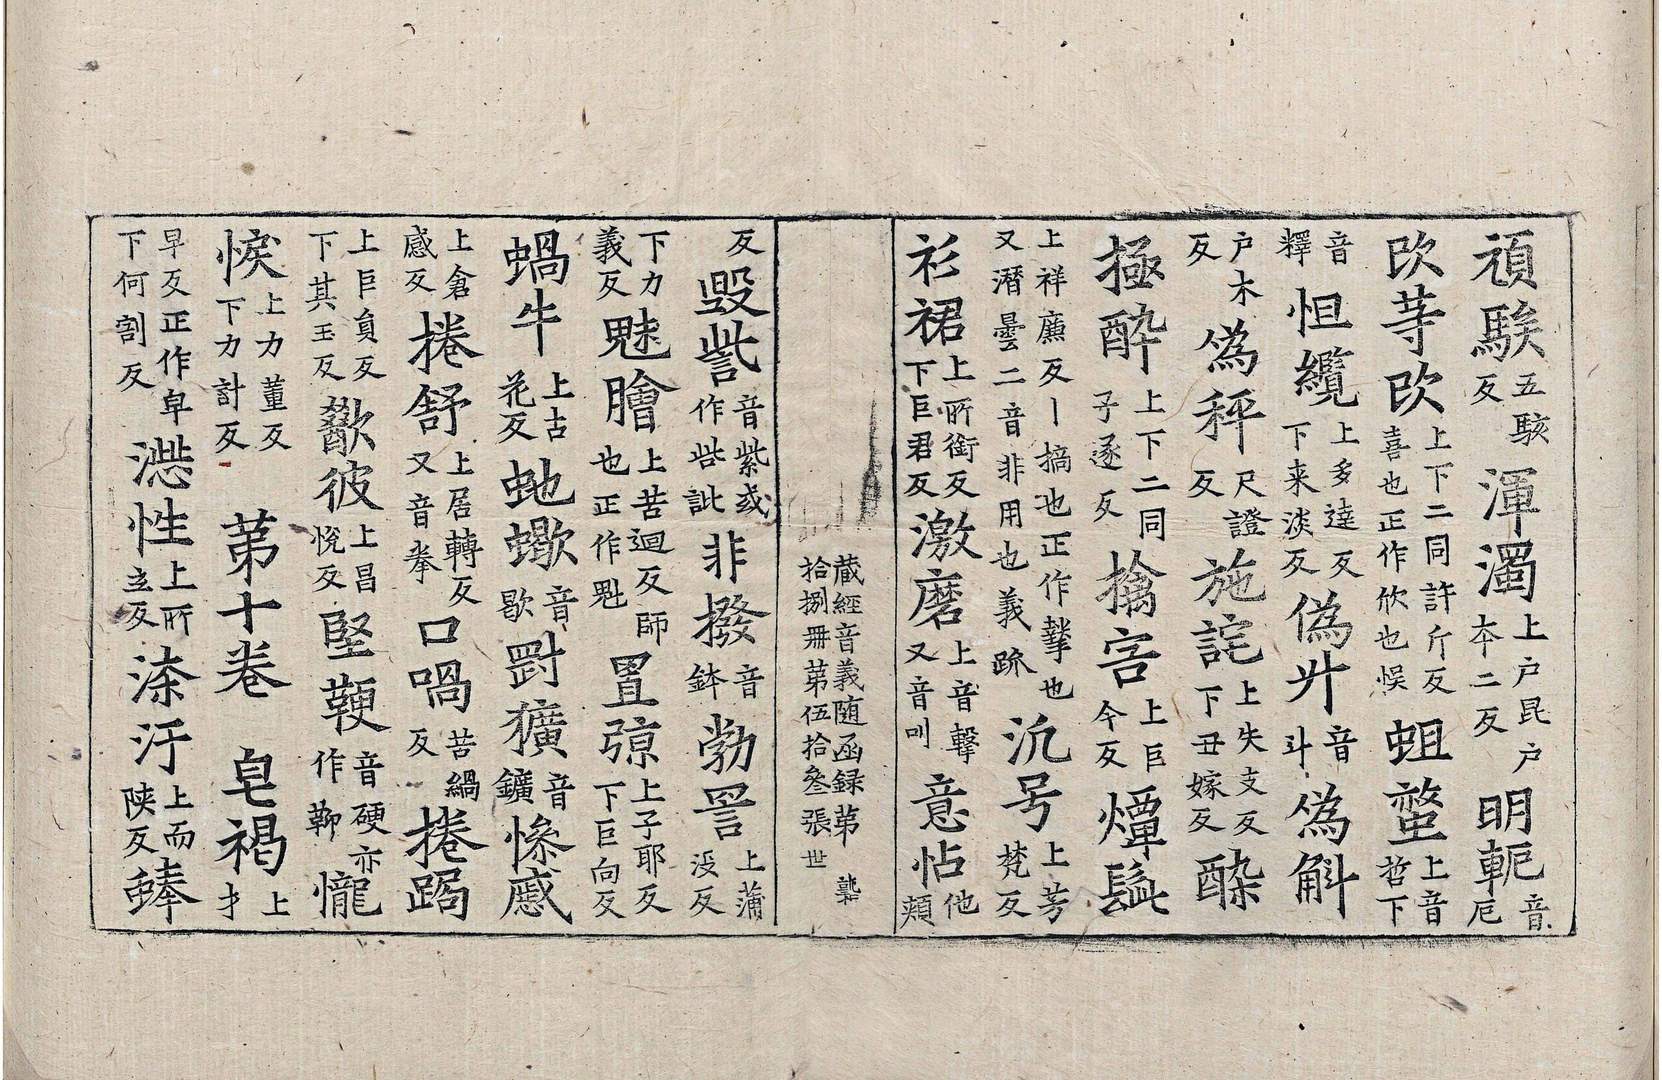 頑騃五駭反渾濁上户昆户本二反明軛音厄
㰟䓁㰟上下二同許斤反喜也正作欣也悮蛆螫上音哲下
音釋怛纜上多達反下来淡反偽㪷音斗偽斛
户木反偽秤尺證反施詫上失支反下丑嫁反酧
㨒酔上下二同子遂反擒害上巨今反燂䰂
上祥廉反丨摘也正作㨷也又潛曇二音非用也義䟽汎号上芳梵反
衫裙上所銜反下巨君反激磨上音擊又音叫意怗他頬
蔵經音義随函録第拾捌冊第伍拾叄張世
反毀訾音紫或作呰訿非撥音鉢勃詈上蒲没反
下力義反魁膾上苦迴反師也正作魁罝弶上子耶反下巨向反
蝸牛上古花反虵蠍音歇𦋺獷音鑛慘慼
上倉感反捲舒上居轉反又音拳口喎苦緺反捲跼
上巨負反下其玉反歠彼上昌悅反堅鞕音硬亦作䩕㦕
悷上力董反下力計反第十卷皂褐上
早反正作皁下何割反澁性上所立反㴜汙上而陜反𧋴